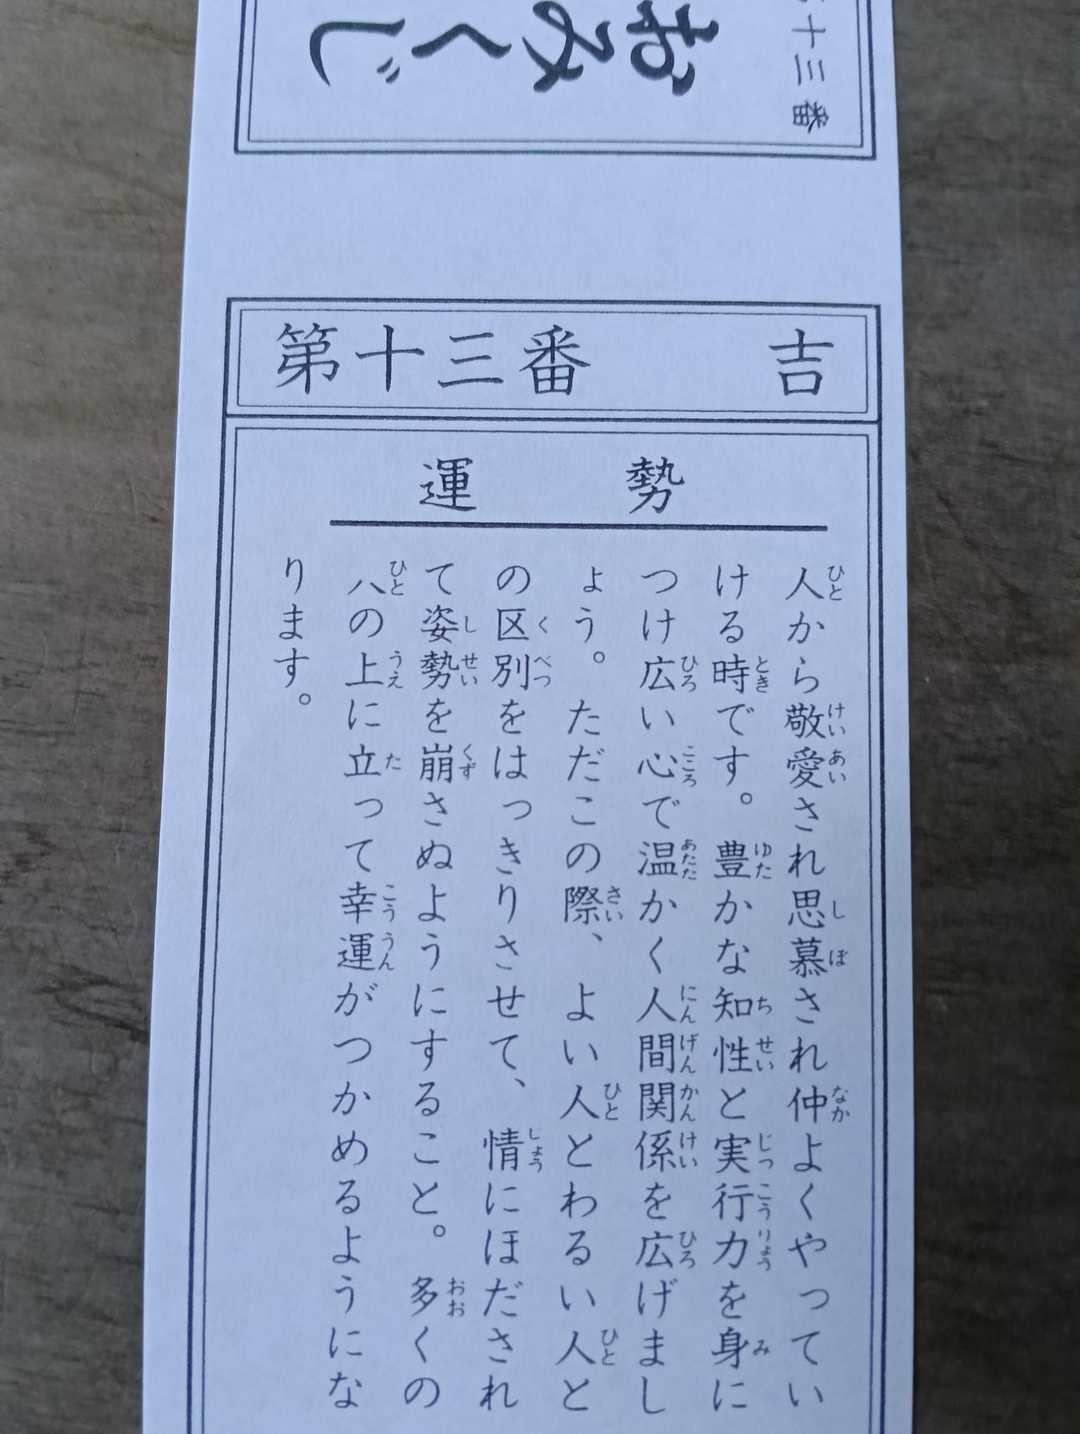 おみくじ
十三番
第十三番 吉
運勢
人から敬愛され思慕され仲よくやってい
ける時です。豊かな知性と実行力を身に
つけ広い心で温かく人間関係を広げまし
ょう。ただこの際、よい人とわるい人と
の区別をはっきりさせて、情にほだされ
て姿勢を崩さぬようにすること。多くの
人の上に立って幸運がつかめるようにな
ります。